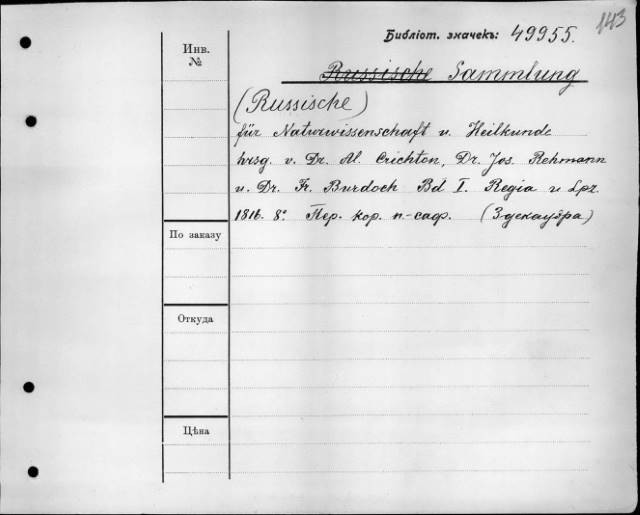 143
Библіот. значекъ: 49955.
Инв.
№
Russische Sammlung
(Russische)
für Naturwissenschaft u. Heilkunde
hrsg. v. Dr. Al. Crichton, Dr. Jos. Rehmann
u. Dr. Fr. Burdoch Bd I. Regia u Lpz.
1816. 8º. Пер. кор. п.-саф. (Здекауэра)
По заказу
Откуда
Цѣна